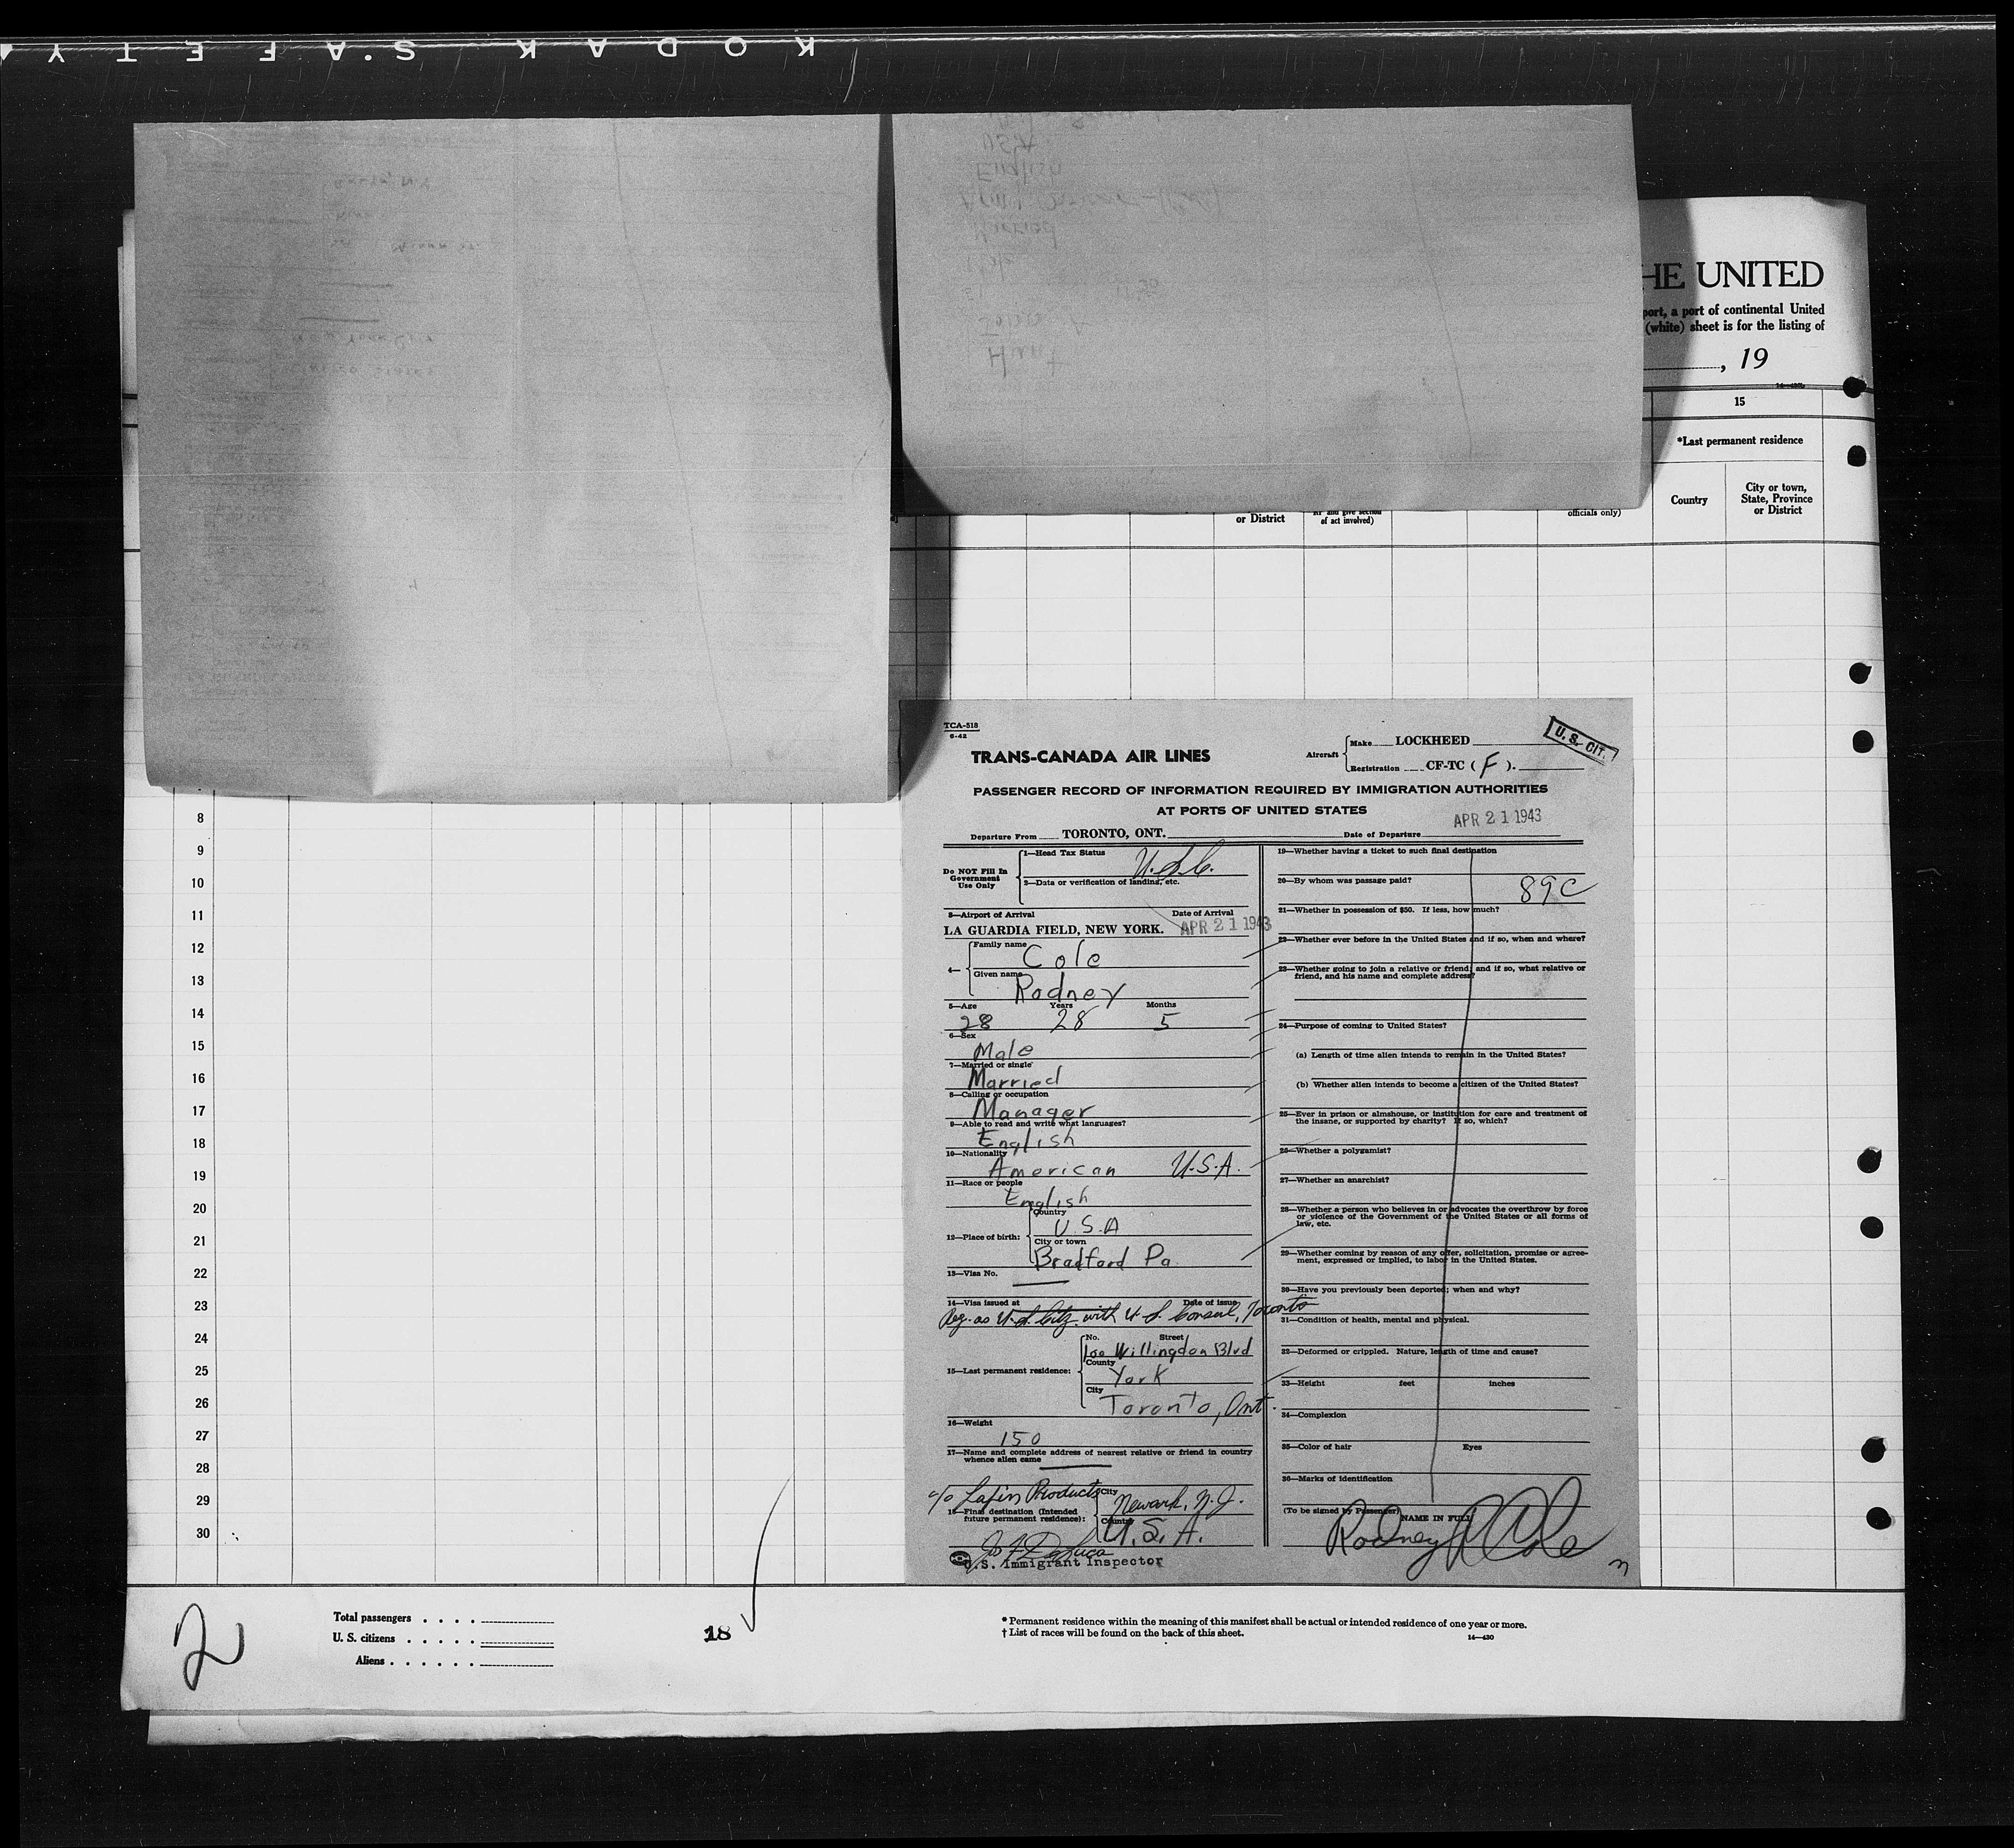 KODAK SAFETY
HE UNITED
port, a port of continental United
(white) sheet is for the listing of
, 19
15
*Last permanent residence
Country
City or town,
State, Province
or District
or District
of act involved)
officials only)
TCA-518
6-42
TRANS-CANADA AIR LINES
Aircraft
Make LOCKHEED
Registration CF-TC ( F ).
U. S. CIT.
PASSENGER RECORD OF INFORMATION REQUIRED BY IMMIGRATION AUTHORITIES
AT PORTS OF UNITED STATES
Departure From TORONTO, ONT. Date of Departure APR 21 1943
Do NOT Fill In
Government
Use Only
1—Head Tax Status U.S.C.
2—Data or verification of landing, etc.
3—Airport of Arrival Date of Arrival
LA GUARDIA FIELD, NEW YORK. APR 21 1943
4—
Family name Cole
Given name Rodney
5—Age Years Months
28 28 5
6—Sex
Male
7—Married or single
Married
8—Calling or occupation
Manager
9—Able to read and write what languages?
English
10—Nationality
American U.S.A.
11—Race or people
English
12—Place of birth:
Country
U.S.A
City or town
Bradford Pa.
13—Visa No.
14—Visa issued at Date of issue
Reg. as U.S. Citz. with U.S. Consul, Toronto
15—Last permanent residence:
No. Street
100 Willingdon Blvd
County
York
City
Toronto, Ont.
16—Weight
150
17—Name and complete address of nearest relative or friend in country
whence alien came
c/o Products
18—Final destination (Intended
future permanent residence):
City
Newark, N.J.
Country
U.S.A.
U.S. Immigrant Inspector
19—Whether having a ticket to such final destination
20—By whom was passage paid?
89C
21—Whether in possession of $50. If less, how much?
22—Whether ever before in the United States and if so, when and where?
23—Whether going to join a relative or friend; and if so, what relative or
friend, and his name and complete address?
24—Purpose of coming to United States?
(a) Length of time alien intends to remain in the United States?
(b) Whether alien intends to become a citizen of the United States?
25—Ever in prison or almshouse, or institution for care and treatment of
the insane, or supported by charity? If so, which?
26—Whether a polygamist?
27—Whether an anarchist?
28—Whether a person who believes in or advocates the overthrow by force
or violence of the Government of the United States or all forms of
law, etc.
29—Whether coming by reason of any offer, solicitation, promise or agree-
ment, expressed or implied, to labor in the United States.
30—Have you previously been deported; when and why?
31—Condition of health, mental and physical.
32—Deformed or crippled. Nature, length of time and cause?
33—Height feet inches
34—Complexion
35—Color of hair Eyes
36—Marks of identification
(To be signed by Passenger)
NAME IN FULL
Rodney R Cole
8
9
10
11
12
13
14
15
16
17
18
19
20
21
22
23
24
25
26
27
28
29
30
2
Total passengers . . . .
U. S. citizens . . . . .
Aliens . . . . . .
18
* Permanent residence within the meaning of this manifest shall be actual or intended residence of one year or more.
† List of races will be found on the back of this sheet.
14—430